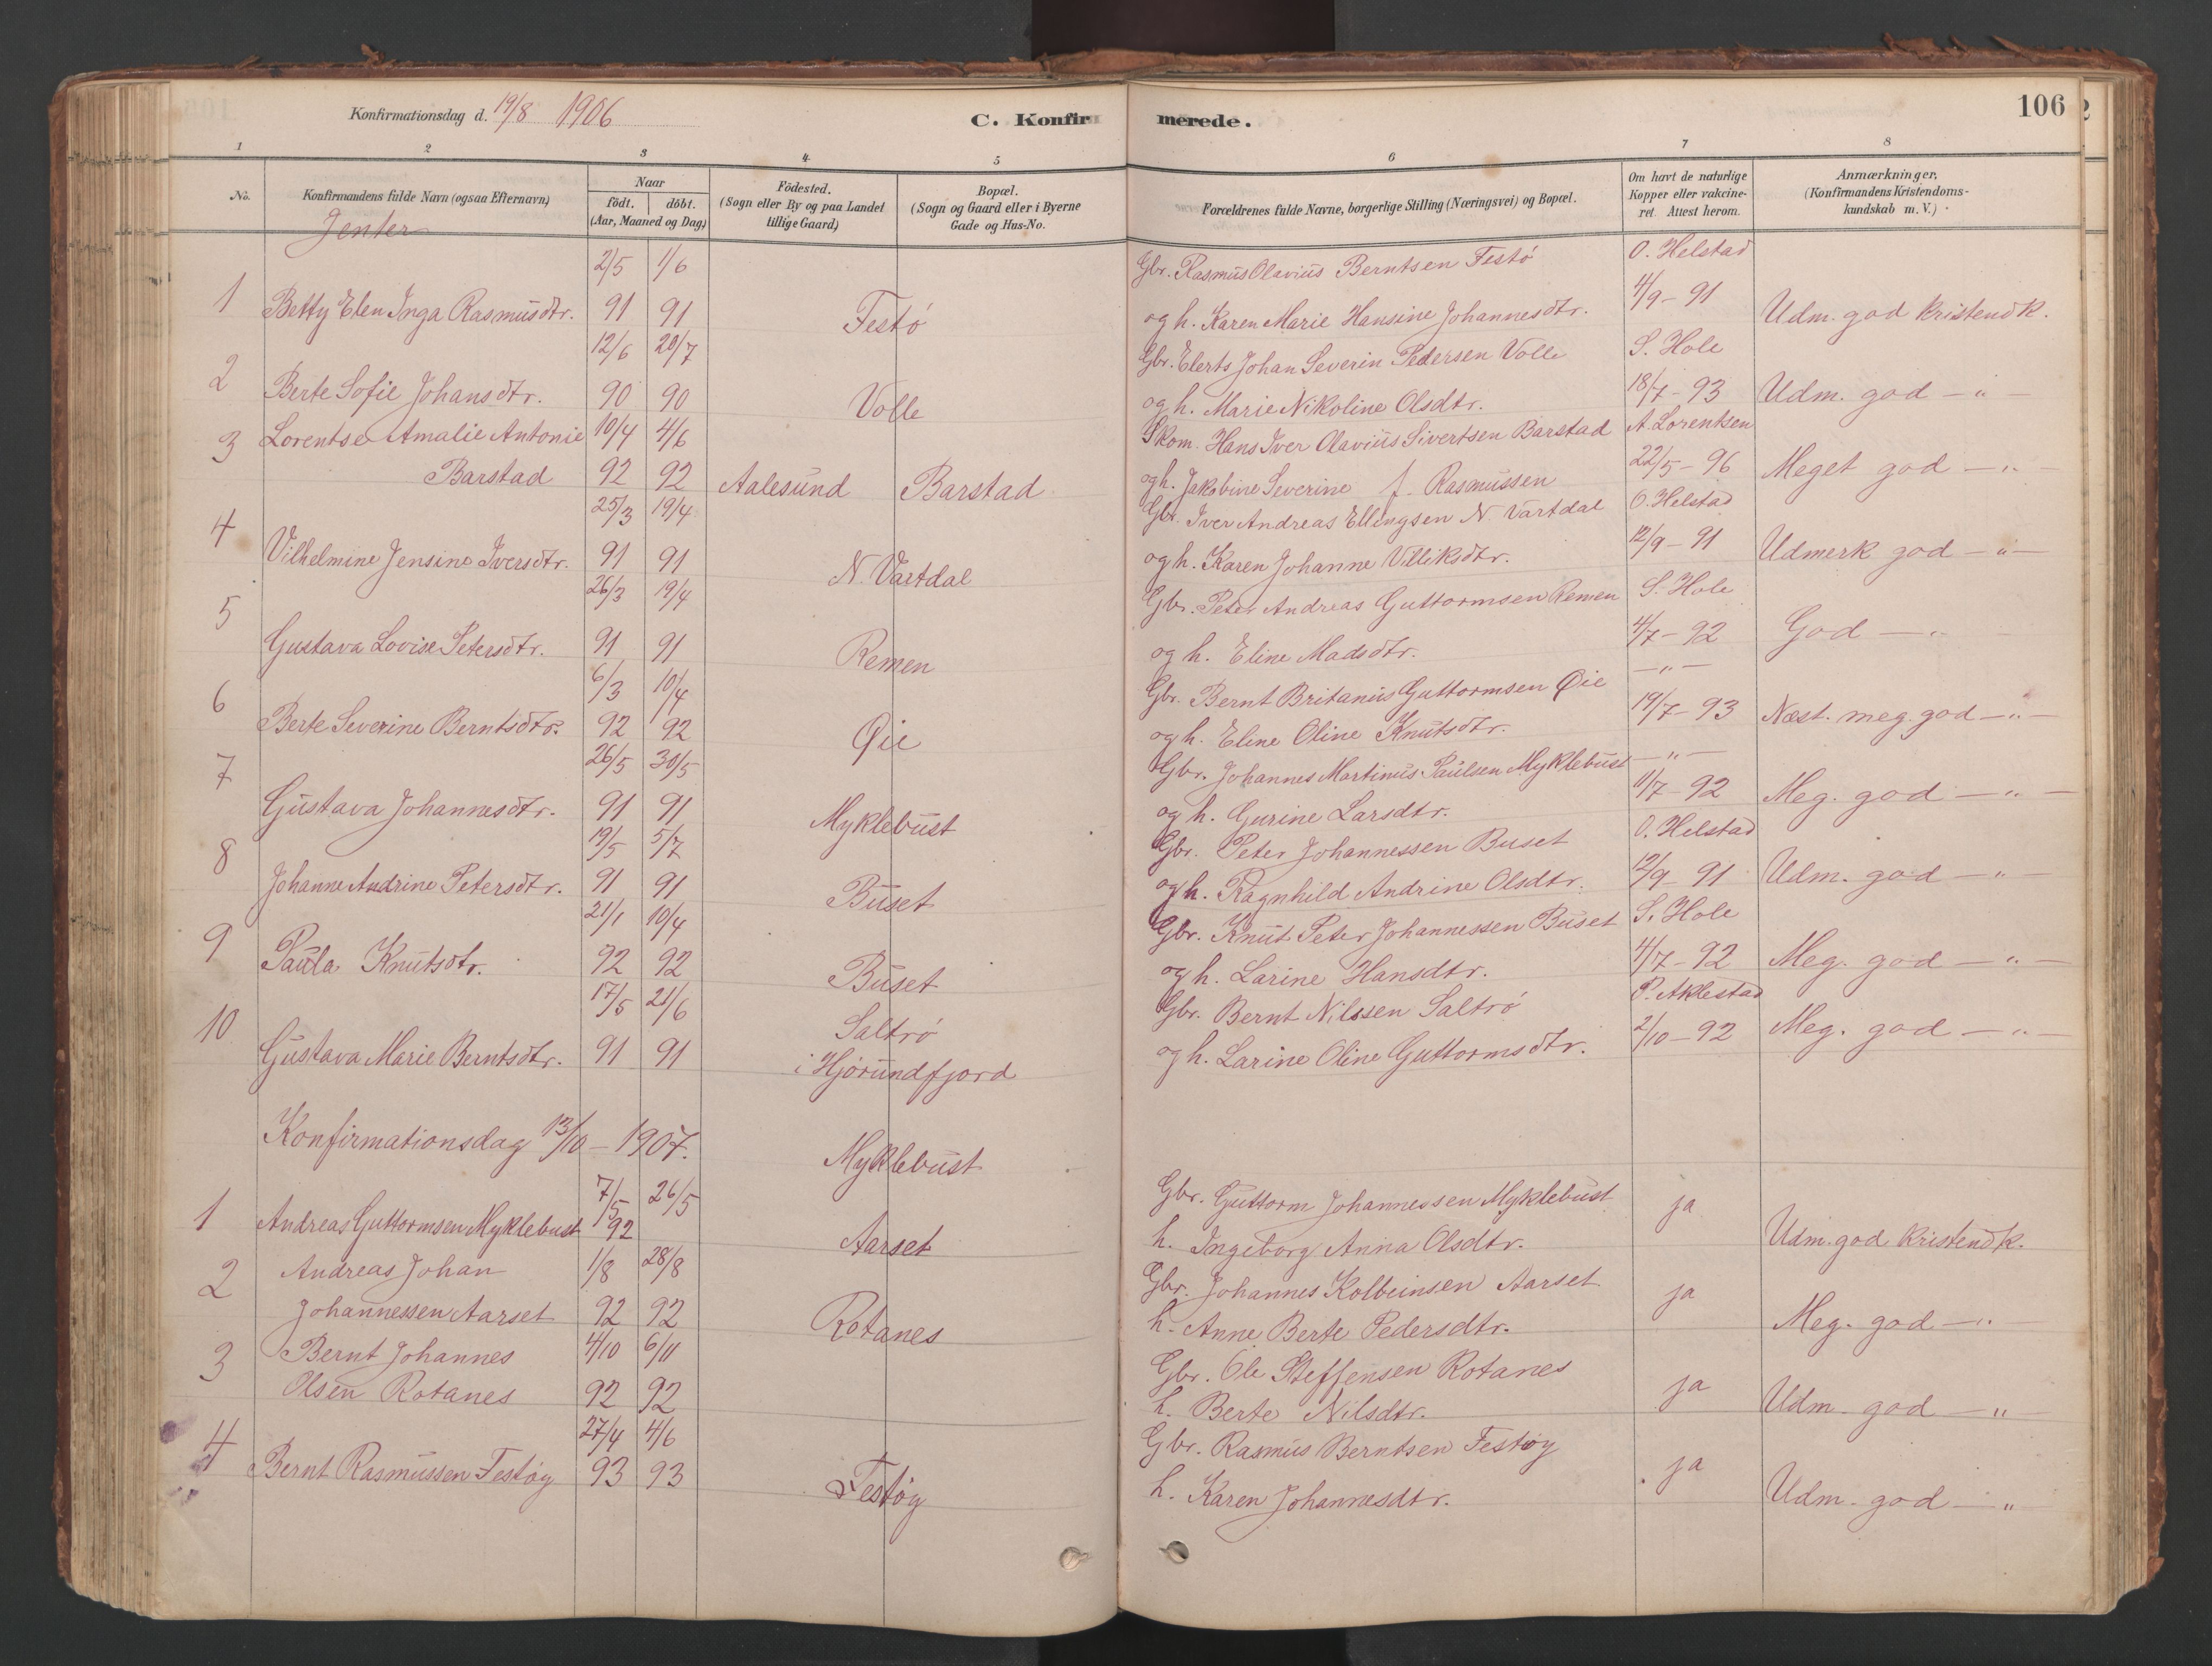 Konfirmationsdag d. 19/8 1906
C. Konfirmerede.
106
1 2 3 4 5 6 7 8
No.
Konfirmandens fulde Navn (ogsaa Efternavn)
Naar
födt. döbt.
(Aar, Maaned og Dag)
Födested.
(Sogn eller By og paa Landet
tillige Gaard)
Bopæl.
(Sogn og Gaard eller i Byerne
Gade og Hus-No.
Forældrenes fulde Navne, borgerlige Stilling (Næringsvei) og Bopæl.
Om havt de naturlige
Kopper eller vakcine-
ret. Attest herom.
Anmærkninger,
(Konfirmandens Kristendoms-
kundskab m. V.)
Jenter
2/5 1/6 Gbr. Rasmus Olavius Berntsen Festø O. Helstad
1 Betty Elen Inga Rasmusdtr. 91 91 Festø og h. Karen Marie Hansine Johannesdtr. 4/9-91 Udm. god kristendk.
12/6 20/7 Gbr. Elerts Johan Severin Pedersen Volle S. Hole
2 Berte Sofie Johansdtr. 90 90 Volle og h. Marie Nikoline Olsdtr. 18/7-93 Udm. god — " —
3 Lorentse Amalie Antonie 10/4 4/6 Skom. Hans Iver Olavius Sivertsen Barstad A. Lorentsen
Barstad 92 92 Aalesund Barstad og h. Jakobine Severine f. Rasmussen 22/5-96 Meget god — " —
25/3 19/4 Gbr. Iver Andreas Ellingsen N. Vartdal O. Helstad
4 Vilhelmine Jensine Iversdtr. 91 91 N. Vartdal og h. Karen Johanne Villiksdtr. 12/9-91 Udmerk god — " —
26/3 19/4 Gbr. Peter Andreas Guttormsen Remen S. Hole
5 Gustava Lovise Petersdtr. 91 91 Remen og h. Eline Madsdtr. 4/7-92 God — " —
6/3 10/4 Gbr. Bernt Britanus Guttormsen Øie — " —
6 Berte Severine Berntsdtr. 92 92 Øie og h. Eline Oline Knutsdtr. 19/7-93 Næst. meg. god — " —
26/5 30/5 Gbr. Johannes Martinus Paulsen Myklebust — " —
7 Gustava Johannesdtr. 91 91 Myklebust og h. Gurine Larsdtr. 11/7-92 Meg. god — " —
19/5 5/7 Gbr. Peter Johannessen Buset O. Helstad
8 Johanne Andrine Petersdtr. 91 91 Buset og h. Ragnhild Andrine Olsdtr. 12/9-91 Udm. god — " —
21/1 10/4 Gbr. Knut Peter Johannessen Buset S. Hole
9 Paula Knutsdtr. 92 92 Buset og h. Larine Hansdtr. 4/7-92 Meg. god — " —
17/5 21/6 Saltrø Gbr. Bernt Nilssen Saltrø P. Aklestad
10 Gustava Marie Berntsdtr. 91 91 i Hjørundfjord og h. Larine Oline Guttormsdtr. 2/10-92 Meg. god — " —
Konfirmationsdag 13/10 - 1907.
7/5 26/5 Myklebust Gbr. Guttorm Johannessen Myklebust ja
1 Andreas Guttormsen Myklebust 92 h. Ingeborg Anna Olsdtr. Udm. god kristendk.
2 Andreas Johan 1/8 28/8 Aarset Gbr. Johannes Kolbeinsen Aarset ja
Johannessen Aarset 92 92 h. Anne Berte Pedersdtr. Meg. god — "
3 Bernt Johannes 4/10 6/11 Rotanes Gbr. Ole Steffensen Rotanes ja
Olsen Rotanes 92 92 h. Berte Nilsdtr. Udm. god — "
27/4 4/6 Gbr. Rasmus Berntsen Festøy ja
4 Bernt Rasmussen Festøy 93 93 Festøy h. Karen Johannesdtr. Udm. god — "